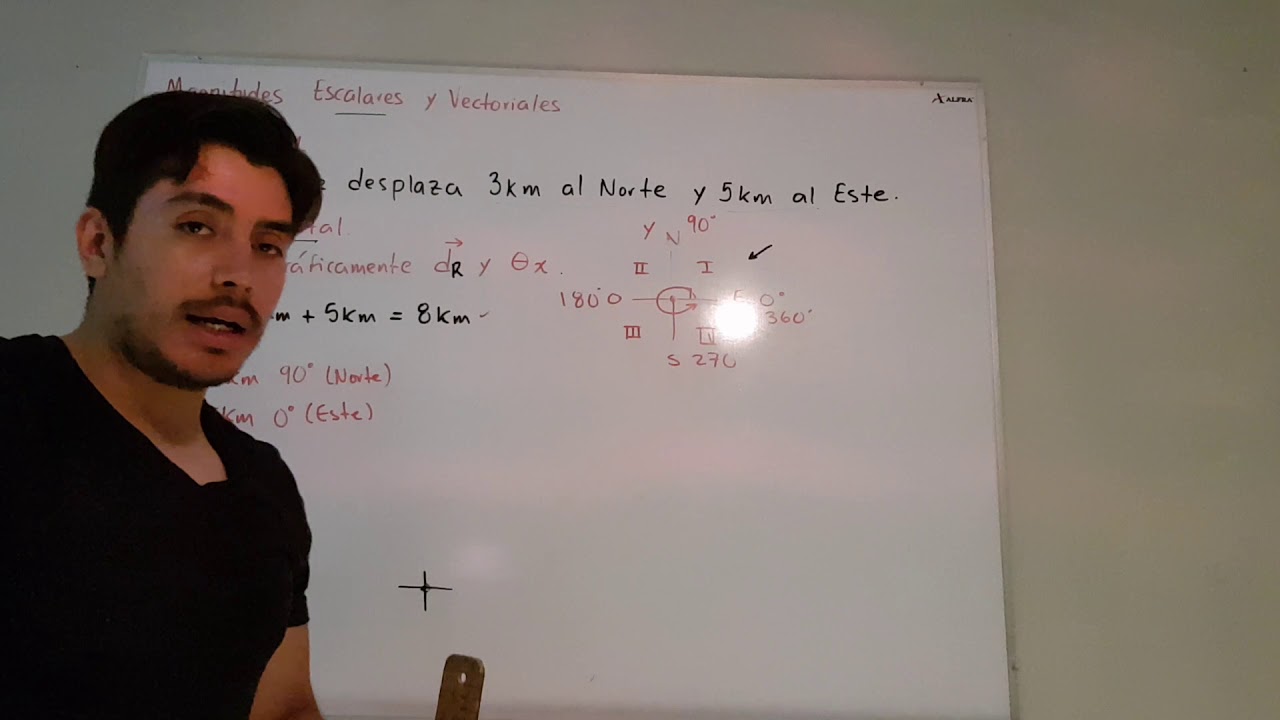 Magnitudes Escalares y Vectoriales
ALFRA
desplaza 3km al Norte y 5km al Este.
tal.
ráficamente dR y θx.
m + 5km = 8km
km 90° (Norte)
5km 0° (Este)
y N 90°
II I
180° O E 0°
360°
III IV
S 270